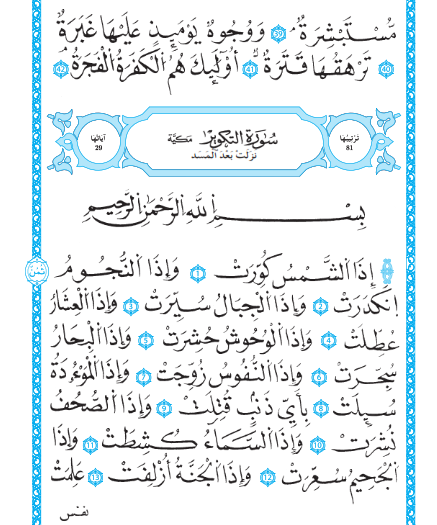 مُّسْتَبْشِرَةٌ ۝39 وَوُجُوهٌ يَوْمَئِذٍ عَلَيْهَا غَبَرَةٌ
۝40 تَرْهَقُهَا قَتَرَةٌ ۝41 أُوْلَٰٓئِكَ هُمُ ٱلْكَفَرَةُ ٱلْفَجَرَةُ ۝42
تَرْتِيبُهَا 81
سُورَةُ التَّكْوِيرِ مَكِّيَّة
آيَاتُهَا 29
نَزَلَتْ بَعْدَ الْمَسَد
بِسْمِ ٱللَّهِ ٱلرَّحْمَٰنِ ٱلرَّحِيمِ
إِذَا ٱلشَّمْسُ كُوِّرَتْ ۝1 وَإِذَا ٱلنُّجُومُ
ثمن
ٱنكَدَرَتْ ۝2 وَإِذَا ٱلْجِبَالُ سُيِّرَتْ ۝3 وَإِذَا ٱلْعِشَارُ
عُطِّلَتْ ۝4 وَإِذَا ٱلْوُحُوشُ حُشِرَتْ ۝5 وَإِذَا ٱلْبِحَارُ
سُجِّرَتْ ۝6 وَإِذَا ٱلنُّفُوسُ زُوِّجَتْ ۝7 وَإِذَا ٱلْمَوْءُۥدَةُ
سُئِلَتْ ۝8 بِأَيِّ ذَنۢبٍ قُتِلَتْ ۝9 وَإِذَا ٱلصُّحُفُ
نُشِرَتْ ۝10 وَإِذَا ٱلسَّمَآءُ كُشِطَتْ ۝11 وَإِذَا
ٱلْجَحِيمُ سُعِّرَتْ ۝12 وَإِذَا ٱلْجَنَّةُ أُزْلِفَتْ ۝13 عَلِمَتْ
نفس